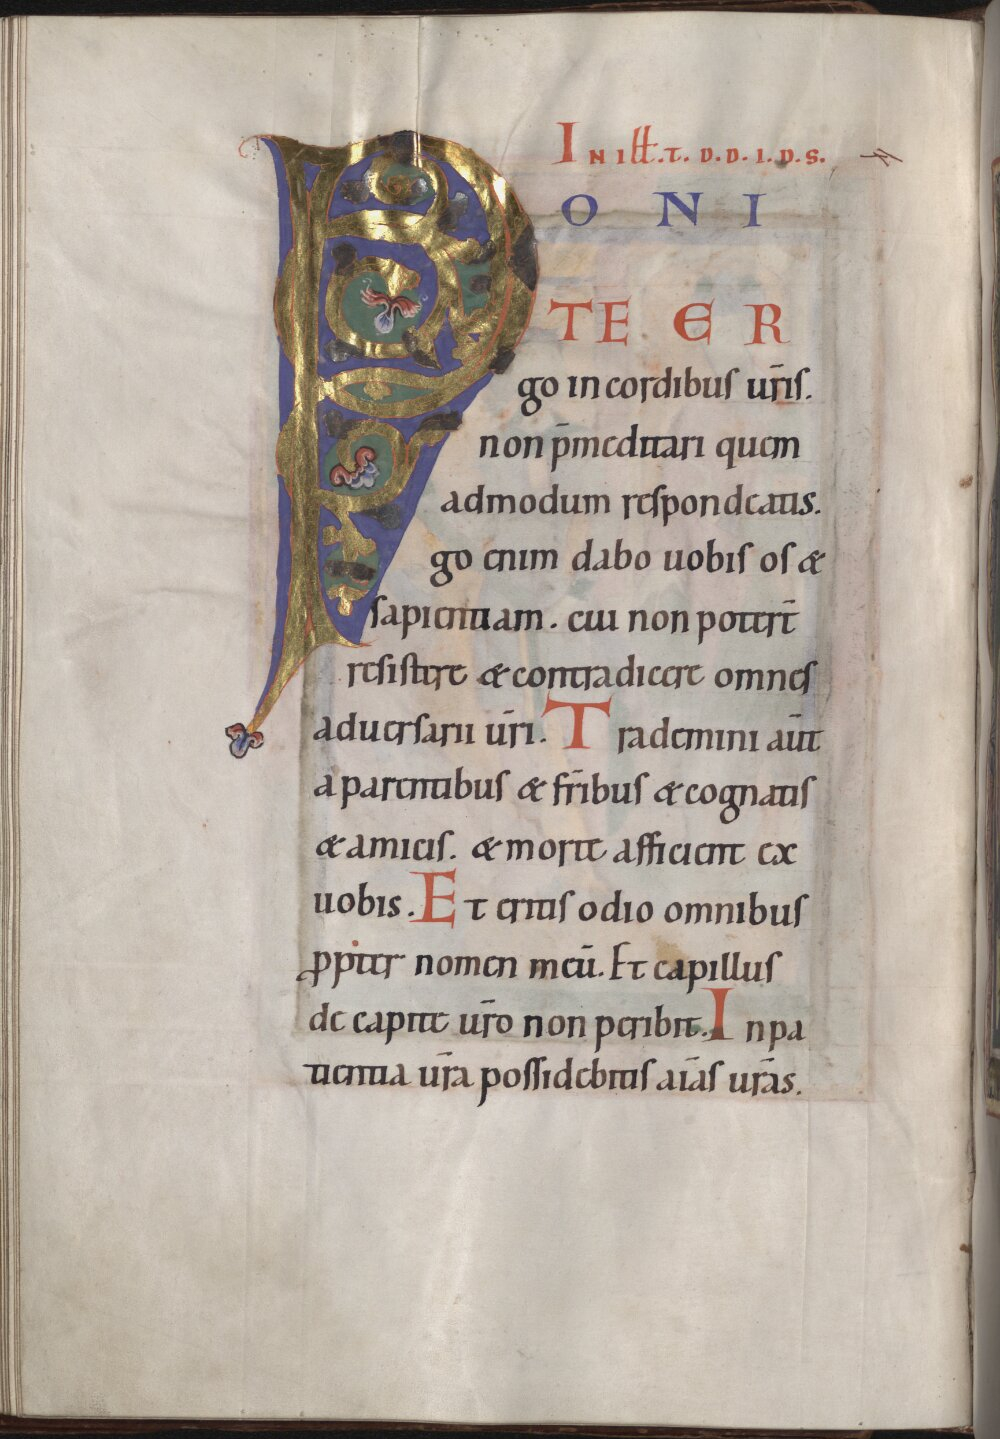 In ill. t. d. d. i. d. s.
PONI
TE ER
go in cordibus ur̄is.
non p̄meditari quem
admodum respondeatis.
go enim dabo uobis os &
sapientiam. cui non potert̄
resistere & contradicere omnes
aduersarii ur̄i. Trademini aūt
a parentibus & fr̄ibus & cognatis
& amicis. & morte afficient ex
uobis. Et eritis odio omnibus
ꝓpter nomen meū. Et capillus
de capite ur̄o non peribit. In pa
tientia ur̄a possidebitis aīas ur̄as.